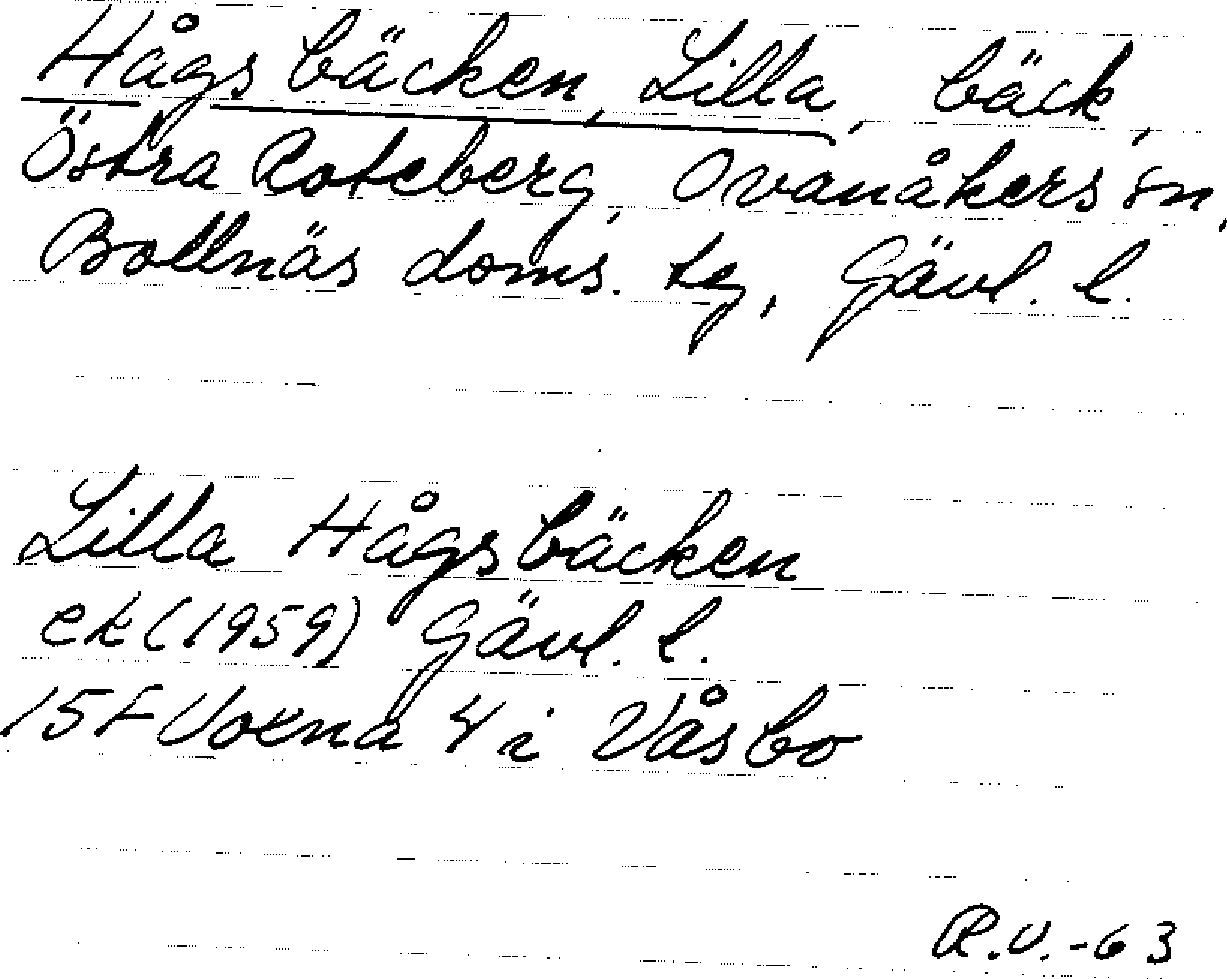 Hågsbäcken, Lilla, bäck,
Östra Roteberg, Ovanåkers sn,
Bollnäs doms. tg, Gävl. l.
Lilla Hågsbäcken
ek (1959) Gävl. l.
15F Voxna 4 i Våsbo
R.U.-63